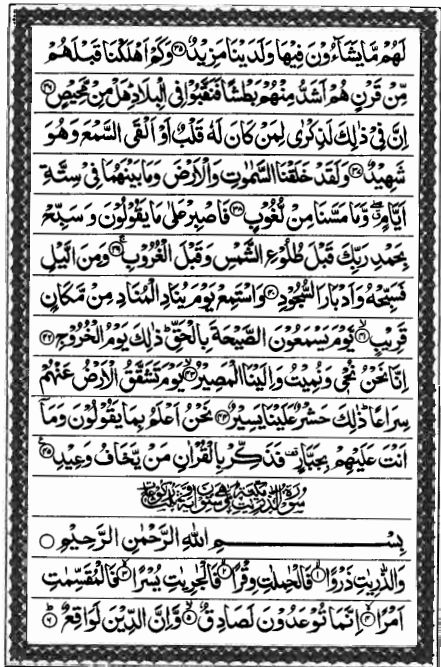 لَهُمْ مَّا يَشَآءُوْنَ فِيْهَا وَلَدَيْنَا مَزِيْدٌ ﴿۳۵﴾ وَكَمْ اَهْلَكْنَا قَبْلَهُمْ
مِّنْ قَرْنٍ هُمْ اَشَدُّ مِنْهُمْ بَطْشًا فَنَقَّبُوْا فِى الْبِلَادِ هَلْ مِنْ مَّحِيْصٍ ﴿۳۶﴾
اِنَّ فِيْ ذٰلِكَ لَذِكْرٰى لِمَنْ كَانَ لَهٗ قَلْبٌ اَوْ اَلْقَى السَّمْعَ وَهُوَ
شَهِيْدٌ ﴿۳۷﴾ وَلَقَدْ خَلَقْنَا السَّمٰوٰتِ وَالْاَرْضَ وَمَا بَيْنَهُمَا فِيْ سِتَّةِ
اَيَّامٍ ۖ وَّمَا مَسَّنَا مِنْ لُّغُوْبٍ ﴿۳۸﴾ فَاصْبِرْ عَلٰى مَا يَقُوْلُوْنَ وَسَبِّحْ
بِحَمْدِ رَبِّكَ قَبْلَ طُلُوْعِ الشَّمْسِ وَقَبْلَ الْغُرُوْبِ ﴿۳۹﴾ وَمِنَ الَّيْلِ
فَسَبِّحْهُ وَاَدْبَارَ السُّجُوْدِ ﴿۴۰﴾ وَاسْتَمِعْ يَوْمَ يُنَادِ الْمُنَادِ مِنْ مَّكَانٍ
قَرِيْبٍ ﴿۴۱﴾ يَّوْمَ يَسْمَعُوْنَ الصَّيْحَةَ بِالْحَقِّ ؕ ذٰلِكَ يَوْمُ الْخُرُوْجِ ﴿۴۲﴾
اِنَّا نَحْنُ نُحْيٖ وَنُمِيْتُ وَاِلَيْنَا الْمَصِيْرُ ﴿۴۳﴾ يَوْمَ تَشَقَّقُ الْاَرْضُ عَنْهُمْ
سِرَاعًا ؕ ذٰلِكَ حَشْرٌ عَلَيْنَا يَسِيْرٌ ﴿۴۴﴾ نَحْنُ اَعْلَمُ بِمَا يَقُوْلُوْنَ وَمَآ
اَنْتَ عَلَيْهِمْ بِجَبَّارٍ ۖ فَذَكِّرْ بِالْقُرْاٰنِ مَنْ يَّخَافُ وَعِيْدِ ﴿۴۵﴾
سُوْرَةُ الذّٰرِيٰتِ مَكِّيَّةٌ
بِسْمِ اللّٰهِ الرَّحْمٰنِ الرَّحِيْمِ ○
وَالذّٰرِيٰتِ ذَرْوًا ﴿۱﴾ فَالْحٰمِلٰتِ وِقْرًا ﴿۲﴾ فَالْجٰرِيٰتِ يُسْرًا ﴿۳﴾ فَالْمُقَسِّمٰتِ
اَمْرًا ﴿۴﴾ اِنَّمَا تُوْعَدُوْنَ لَصَادِقٌ ﴿۵﴾ وَّاِنَّ الدِّيْنَ لَوَاقِعٌ ﴿۶﴾